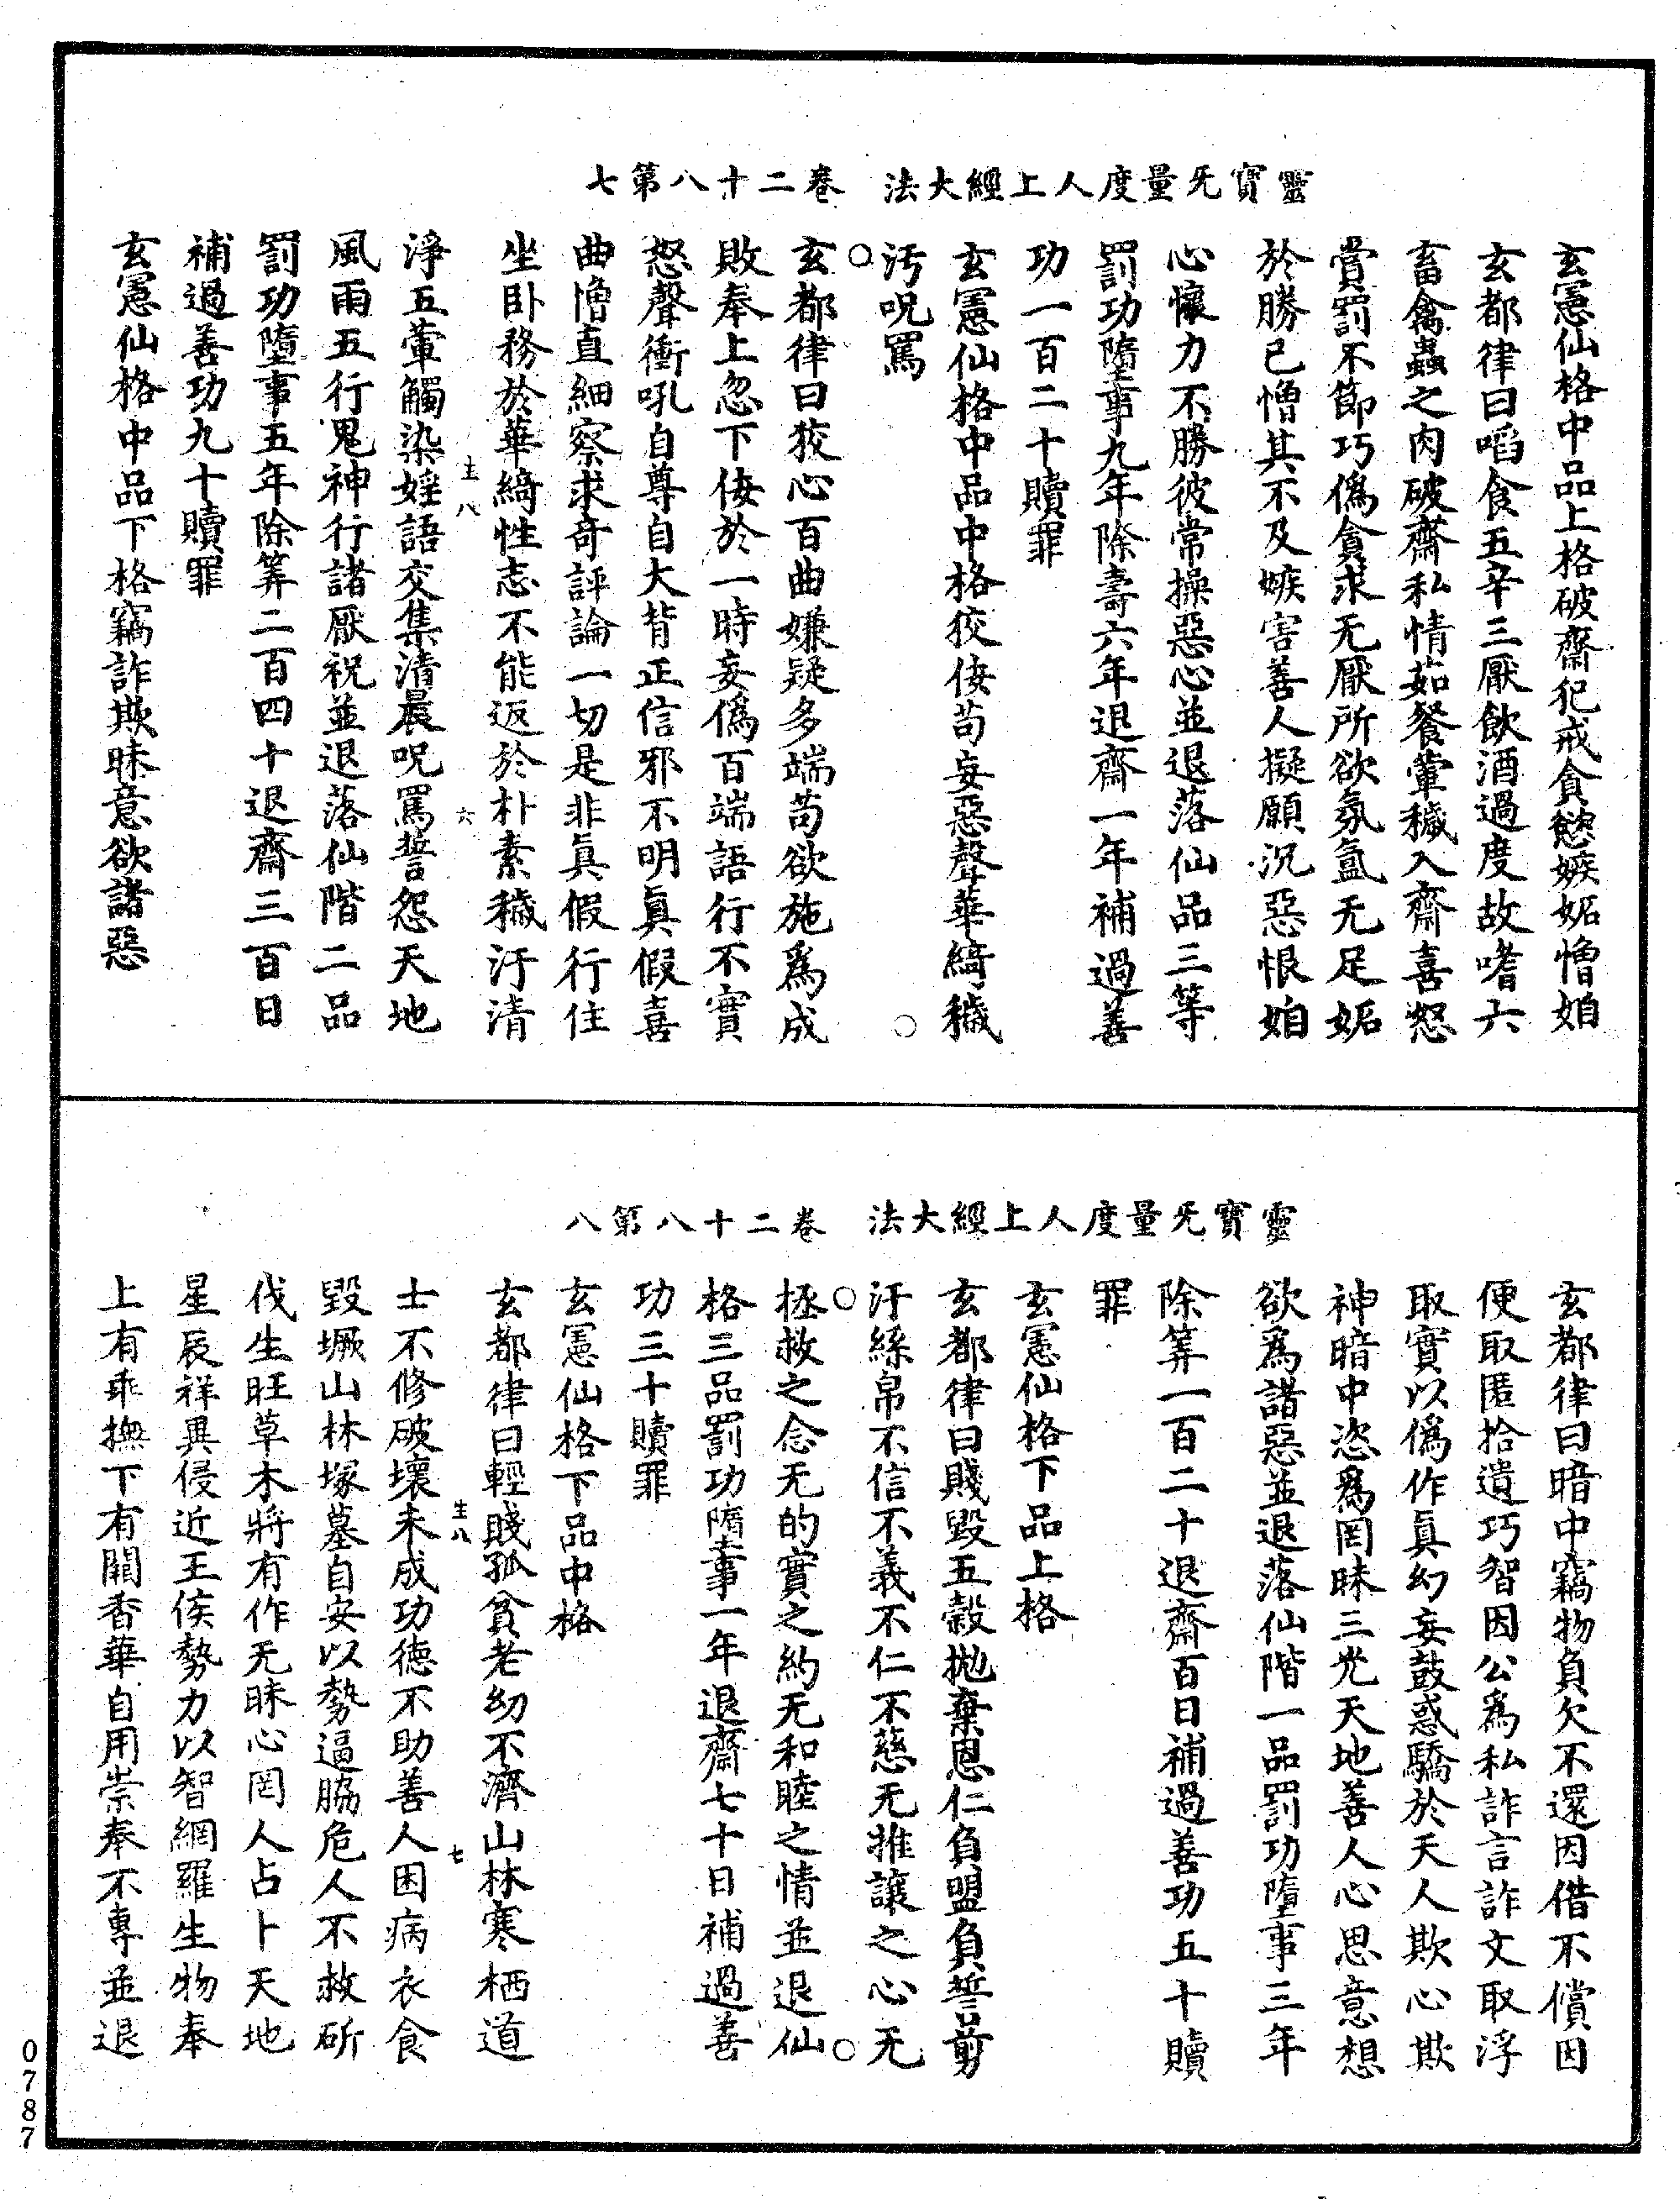 靈寶无量度人上經大法　卷二十八第七
玄憲仙格中品上格破齋犯戒貪慾嫉妬憎妒
玄都律曰啗食五辛三厭飲酒過度故嗜六
畜禽蟲之肉破齋私情茹餐葷穢入齋喜怒
賞罰不節巧偽貪求无厭所欲氛氳无足妬
於勝已憎其不及嫉害善人擬願況惡恨妒
心懷力不勝彼常操惡心並退落仙品三等
罰功墮事九年除壽六年退齋一年補過善
功一百二十贖罪
玄憲仙格中品中格狡佞苟妄惡聲華綺穢
汚呪罵
玄都律曰狡心百曲嫌疑多端苟欲施爲成
敗奉上忽下佞於一時妄偽百端語行不實
怒聲衝吼自尊自大背正信邪不明眞假喜
曲憎直細察求奇評論一切是非眞假行住
坐卧務於華綺性志不能返於朴素穢汙清
淨五葷觸染婬語交集清晨呪罵誓怨天地
風雨五行鬼神行諸厭祝並退落仙階二品
罰功墮事五年除筭二百四十退齋三百日
補過善功九十贖罪
玄憲仙格中品下格竊詐欺昧意欲諸惡
靈寶无量度人上經大法　卷二十八第八
玄都律曰暗中竊物負欠不還因借不償因
便取匿拾遺巧智因公爲私詐言詐文取浮
取實以偽作眞幻妄鼓惑驕於天人欺心欺
神暗中恣爲罔昧三光天地善人心思意想
欲爲諸惡並退落仙階一品罰功墮事三年
除筭一百二十退齋百日補過善功五十贖
罪
玄憲仙格下品上格
玄都律曰賤毀五穀拋棄恩仁負盟負誓剪
汙絲帛不信不義不仁不慈无推讓之心无
拯救之念无的實之約无和睦之情並退仙
格三品罰功墮事一年退齋七十日補過善
功三十贖罪
玄憲仙格下品中格
玄都律曰輕賤孤貧老幼不濟山林寒栖道
士不修破壞未成功德不助善人困病衣食
毀壞山林塚墓自安以勢逼脇危人不救斫
伐生旺草木將有作无昧心罔人占卜天地
星辰祥異侵近王侯勢力以智網羅生物奉
上有乖撫下有闕香華自用崇奉不專並退
0787